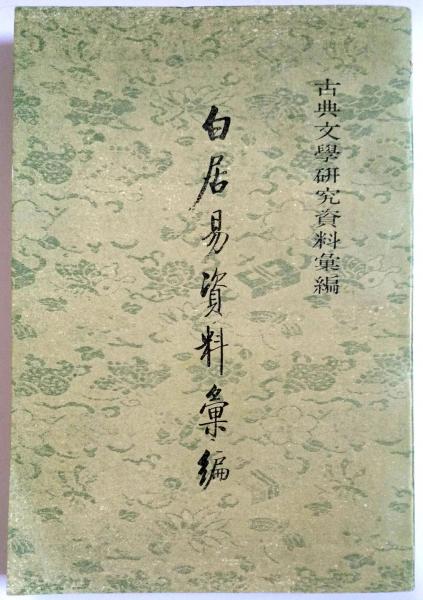 古典文學研究資料彙編
白居易資料彙编